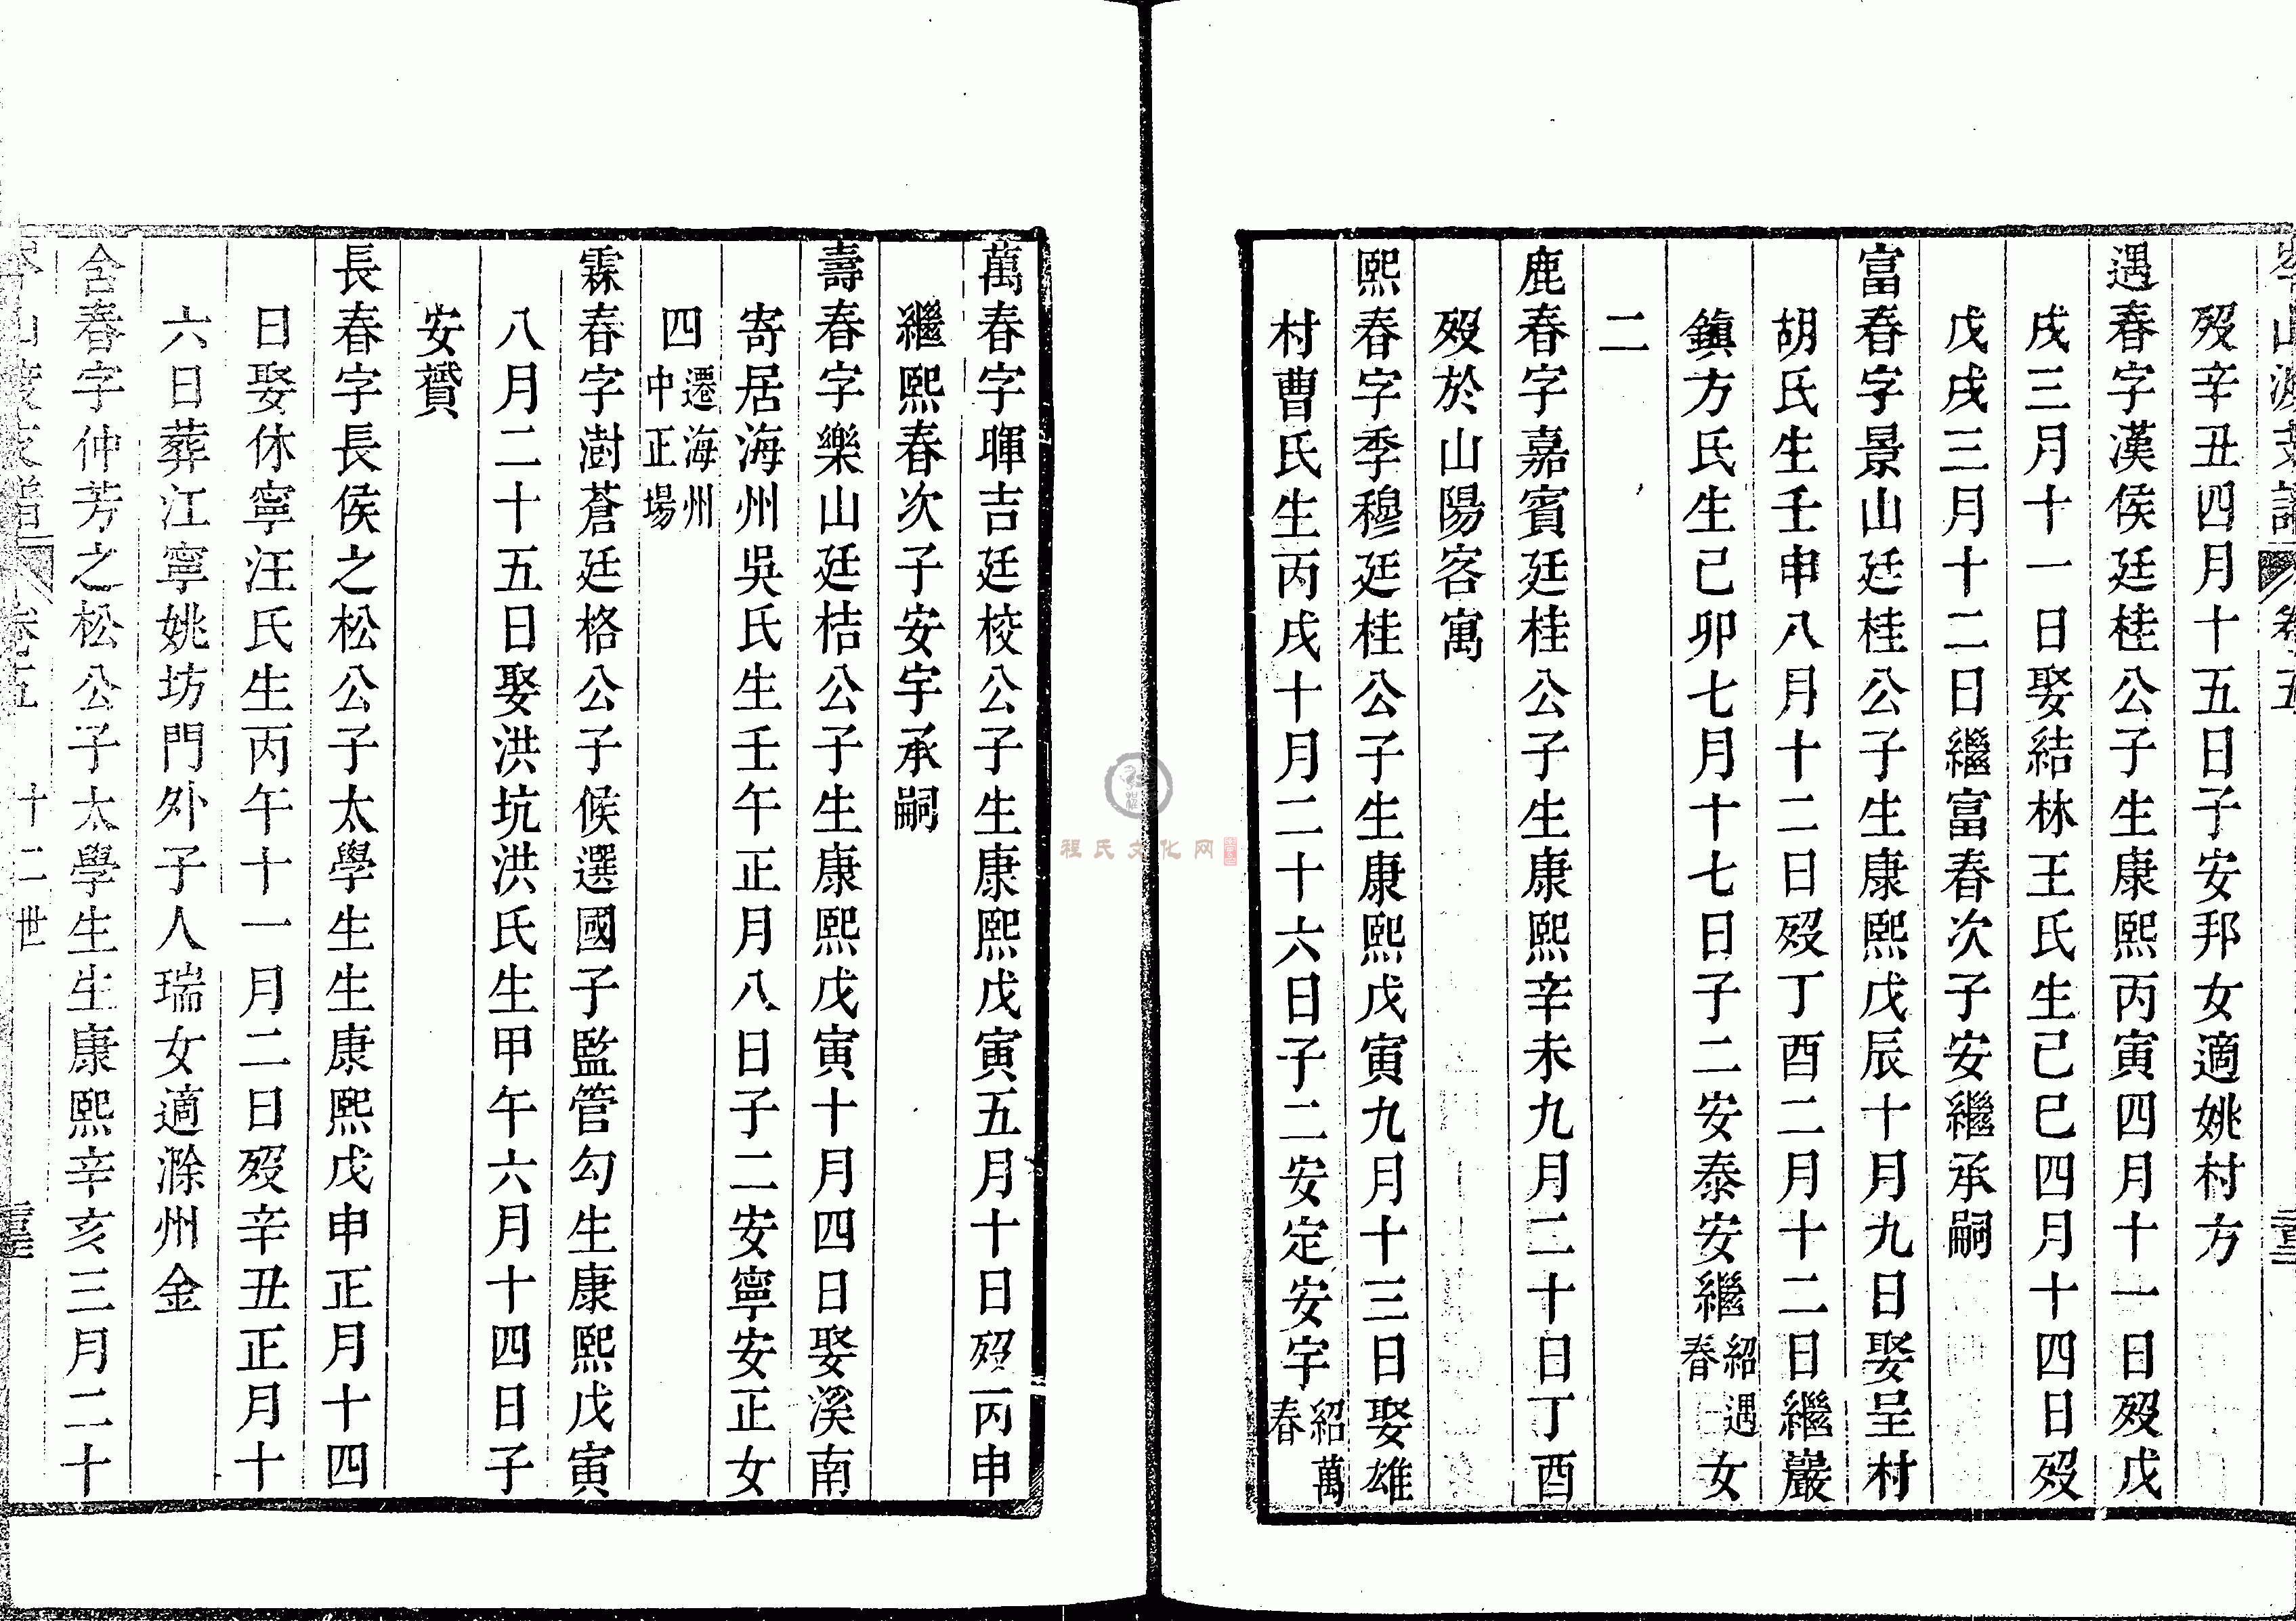 歿辛丑四月十五日子安邦女適姚村方
遇春字漢侯廷桂公子生康熙丙寅四月十一日歿戊
戌三月十一日娶結林王氏生己巳四月十四日歿
戊戌三月十二日繼富春次子安繼承嗣
富春字景山廷桂公子生康熙戊辰十月九日娶呈村
胡氏生壬申八月十二日歿丁酉二月十二日繼巖
鎮方氏生己卯七月十七日子二安泰安繼紹遇春女
二
鹿春字嘉賓廷桂公子生康熙辛未九月二十日丁酉
歿於山陽客寓
熙春字季穆廷桂公子生康熙戊寅九月十三日娶雄
村曹氏生丙戌十月二十六日子二安定安宇紹萬春
萬春字暉吉廷校公子生康熙戊寅五月十日歿丙申
繼熙春次子安宇承嗣
壽春字樂山廷桔公子生康熙戊寅十月四日娶溪南
寄居海州吳氏生壬午正月八日子二安寧安正女
四遷海州中正場
霖春字澍蒼廷格公子候選國子監管勾生康熙戊寅
八月二十五日娶洪坑洪氏生甲午六月十四日子
安贇
長春字長侯之松公子太學生生康熙戊申正月十四
日娶休寧汪氏生丙午十一月二日歿辛丑正月十
六日葬江寧姚坊門外子人瑞女適滁州金
含春字仲芳之松公子太學生生康熙辛亥三月二十
卷五 十二世
程氏文化网